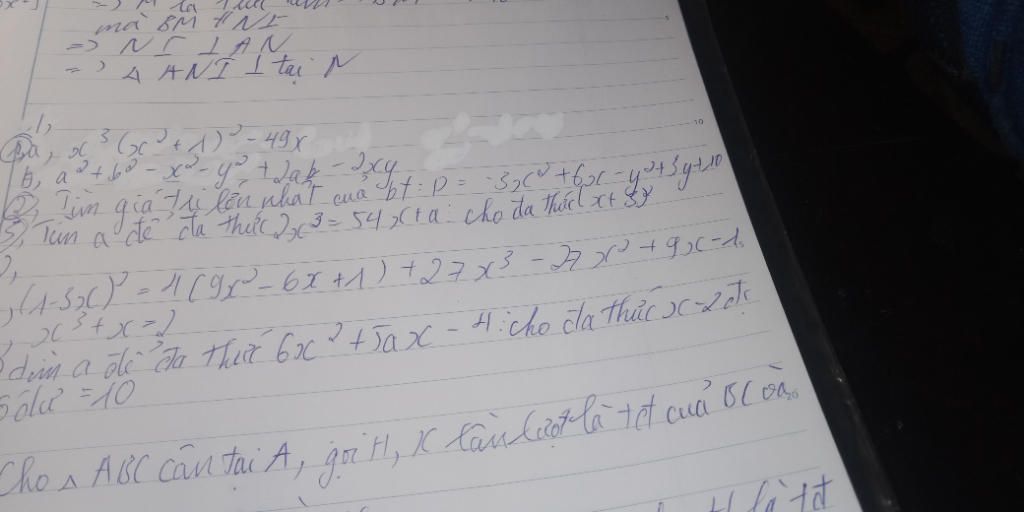 mà BM // NI
=> NI ⊥ AN
=> Δ ANI ⊥ tại N
1,
a, x³(x² + 1)² - 49x
b, a² + b² - x² - y² + 2ab - 2xy
2, Tìm giá trị lớn nhất của bt: P = -3x² + 6x - y² + 3y + 10
3, Tìm a để đa thức 2x³ = 54x + a : cho đa thức (x + 3)²
, (1-3x)² = 4(9x² - 6x + 1) + 27x³ - 27x² + 9x - 1
, x³ + x = 2
dìm a để đa thức 6x² + 5ax - 4 : cho đa thức x - 2 đc
số dư = 10
Cho Δ ABC cân tại A, gọi H, K lần lượt là tđ của BC và
H là tđ